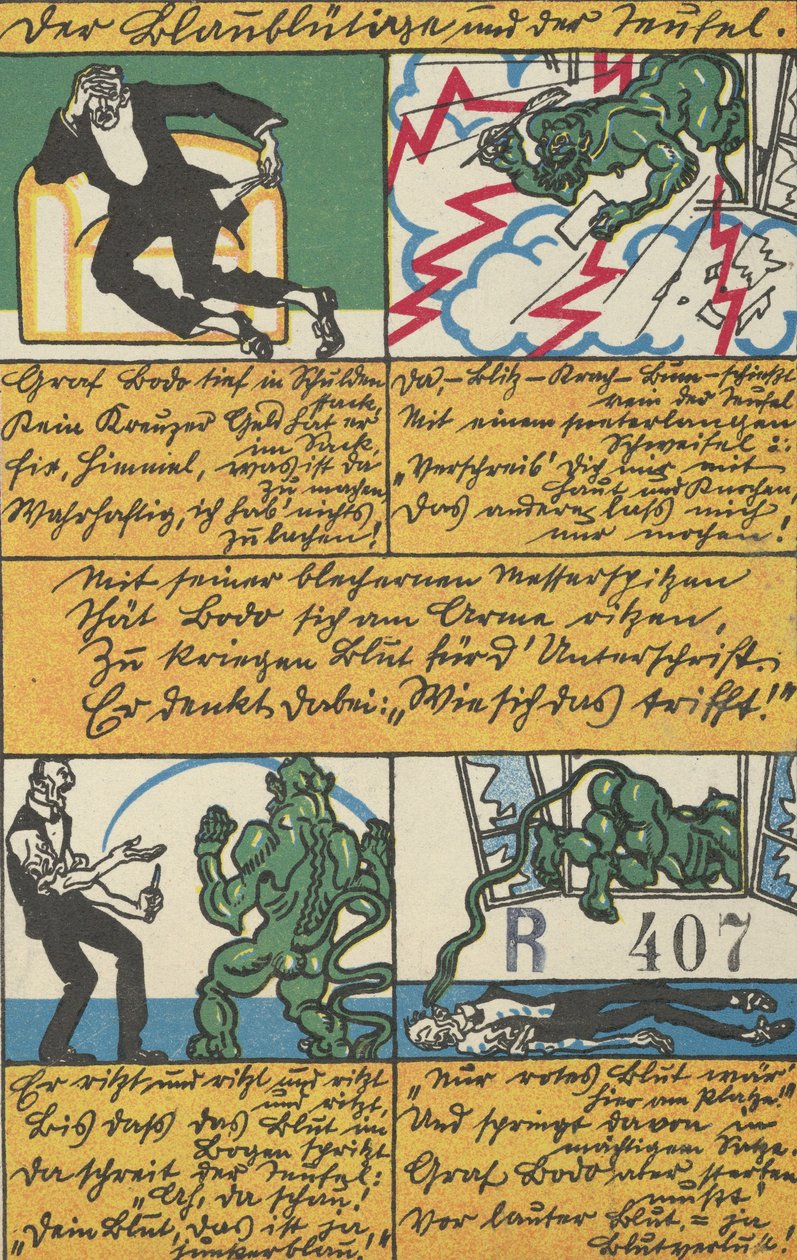 Der Blaublütige und der Teufel.
Graf Bodo tief in Schulden
stack,
Kein Kreuzer Geld hat er
im Sack,
Fix, Himmel, was ist da
zu machen
Wahrhaftig, ich hab' nichts
zu lachen!
Da,- Blitz - Krach - Bum - schießt
rein der Teufel
Mit einem meterlangen
Schweifel :
"Verschreib' Dich mir mit
Haut und Knochen,
Das andere lass mich
nur machen!
Mit seiner blechernen Messerspitzen
Thät Bodo sich am Arme ritzen,
Zu kriegen Blut für d' Unterschrift.
Er denkt dabei: "Wie sich das trifft!"
Er ritzt und ritzt und ritzt
und ritzt,
Bis dass das Blut im
Bogen spritzt
Da schreit der Teufel:
"Ah, da schau!
"Dein Blut, das ist ja
junkerblau."
R 407
"Nur rotes Blut wär'
hier am Platze!"
Und springt davon in
mächtigem Satze.
Graf Bodo aber sterben
musst'
Vor lauter Blut, = ja
Blutverlust.